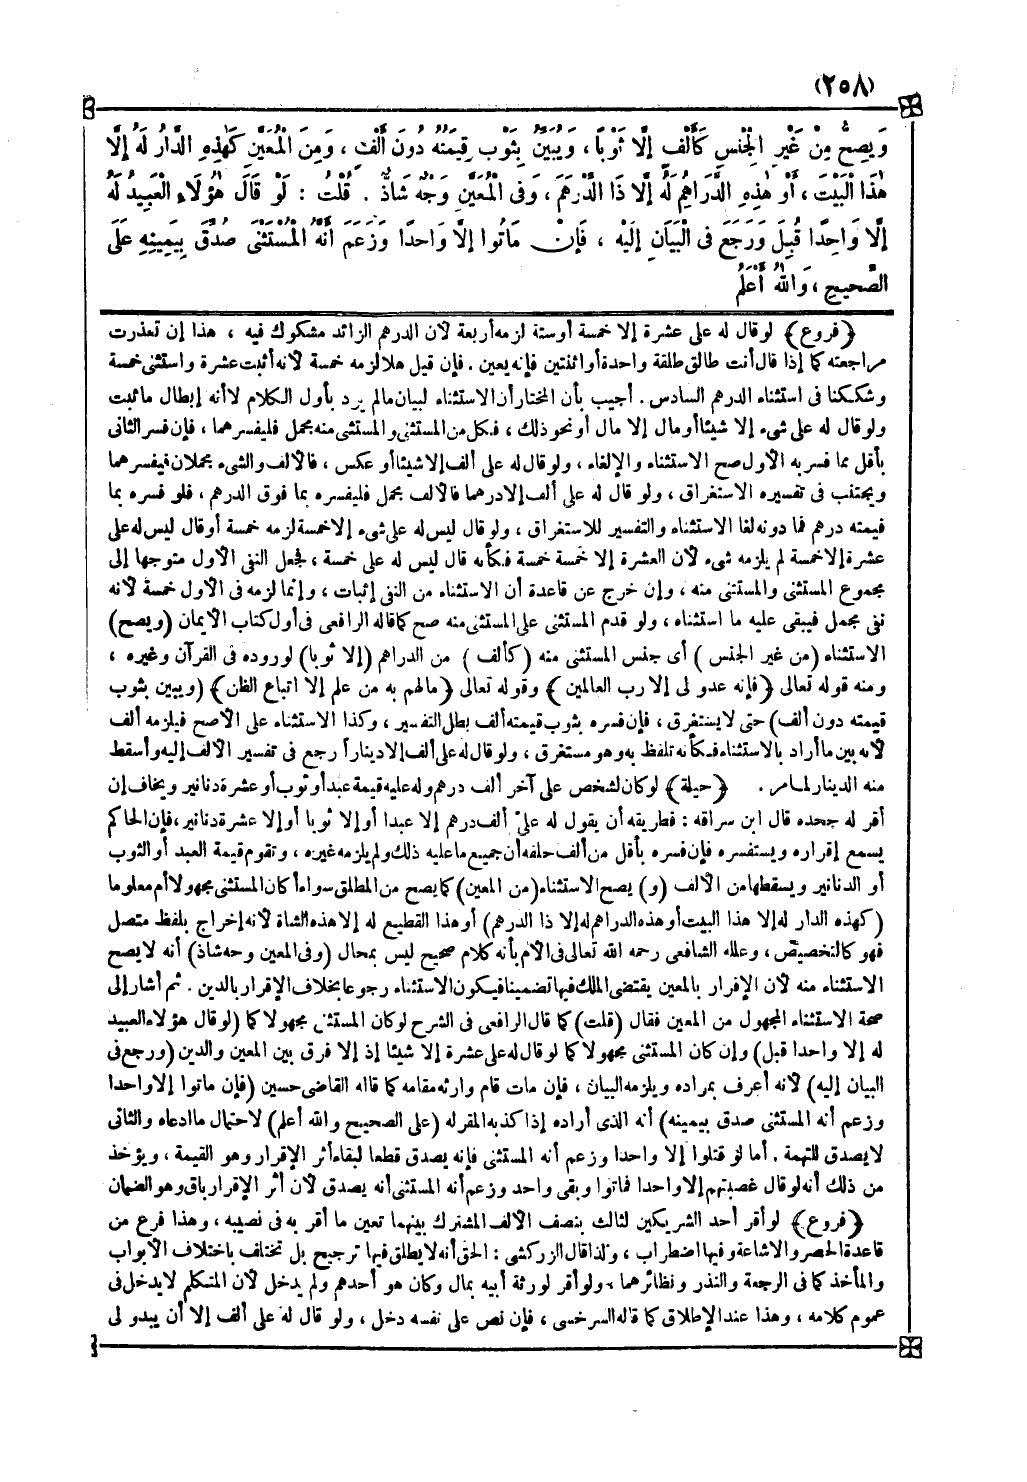 (٢٥٨)
وَيَصِحُّ مِنْ غَيْرِ الْجِنْسِ كَأَلْفٍ إلَّا ثَوْبًا ، وَيُبَيِّنُ بِثَوْبٍ قِيمَتُهُ دُونَ أَلْفٍ ، وَمِنَ الْمُعَيَّنِ كَهٰذِهِ الدَّارُ لَهُ إلَّا
هٰذَا الْبَيْتَ ، أَوْ هٰذِهِ الدَّرَاهِمُ لَهُ إلَّا ذَا الدِّرْهَمَ ، وَفِى الْمُعَيَّنِ وَجْهٌ شَاذٌّ . قُلْتُ : لَوْ قَالَ هٰؤُلَاءِ الْعَبِيدُ لَهُ
إلَّا وَاحِدًا قُبِلَ وَرَجَعَ فِى الْبَيَانِ إلَيْهِ ، فَإِنْ مَاتُوا إلَّا وَاحِدًا وَزَعَمَ أَنَّهُ الْمُسْتَثْنَى صُدِّقَ بِيَمِينِهِ عَلَى
الصَّحِيحِ ، وَاللهُ أَعْلَمُ
﴿فروع﴾ لو قال له على عشرة إلا خمسة أوستة لزمه أربعة لأن الدرهم الزائد مشكوك فيه ، هذا إن تعذرت
مراجعته كما إذا قال أنت طالق طلقة واحدة أو اثنتين فإنه يعين . فإن قيل هلا لزمه خمسة لأنه أثبت عشرة واستثنى خمسة
وشككنا فى استثناء الدرهم السادس . أجيب بأن المختار أن الاستثناء لبيان مالم يرد بأول الكلام لا أنه إبطال ما ثبت
ولو قال له على شىء إلا شيئا أومال إلا مال أو نحو ذلك ، فكل من المستثنى والمستثنى منه مجمل فليفسرهما ، فإن فسر الثانى
بأقل مما فسر به الأول صح الاستثناء وإلالغاء ، ولو قال له على ألف إلا شيئا أو عكس ، فالألف والشىء مجملان فيفسرهما
ويجتنب فى تفسيره الاستغراق ، ولو قال له على ألف إلا درهما فالألف مجمل فليفسره بما فوق الدرهم ، فلو فسره بما
قيمته درهم فما دونه لغا الاستثناء والتفسير للاستغراق ، ولو قال ليس له على شىء إلا خمسة لزمه خمسة أوقال ليس له على
عشرة إلا خمسة لم يلزمه شىء لأن العشرة إلا خمسة خمسة فكأنه قال ليس له على خمسة ، فجعل النفى الأول متوجها إلى
مجموع المستثنى والمستثنى منه ، وإن خرج عن قاعدة أن الاستثناء من النفى إثبات ، وإنما لزمه فى الأول خمسة لأنه
نفى مجمل فيبقى عليه ما استثناه ، ولو قدم المستثنى على المستثنى منه صح كما قاله الرافعى فى أول كتاب الأيمان (ويصح)
الاستثناء (من غير الجنس) أى جنس المستثنى منه (كألف) من الدراهم (إلا ثوبا) لوروده فى القرآن وغيره ،
ومنه قوله تعالى ﴿فإنه عدو لى إلا رب العالمين﴾ وقوله تعالى ﴿مالهم به من علم إلا اتباع الظن﴾ (ويبين بثوب
قيمته دون ألف) حتى لا يستغرق ، فإن فسره بثوب قيمته ألف بطل التفسير ، وكذا الاستثناء على الأصح فيلزمه ألف
لأنه بين ما أراد بالاستثناء فكأنه تلفظ به وهو مستغرق ، ولو قال له على ألف إلا دينارا رجع فى تفسير الألف إليه وأسقط
منه الدينار لمامر . ﴿حيلة﴾ لو كان لشخص على آخر ألف درهم وله عليه قيمة عبد أو ثوب أو عشرة دنانير ويخاف إن
أقر له جحده قال ابن سراقه : فطريقه أن يقول له علىّ ألف درهم إلا عبدا أو إلا ثوبا أو إلا عشرة دنانير ، فإن الحاكم
يسمع إقراره ويستفسره فإن فسره بأقل من ألف حلفه أن جميع ما عليه ذلك ولم يلزمه غيره ، وتقوم قيمة العبد أو الثوب
أو الدنانير ويسقطها من الألف (و) يصح الاستثناء (من المعين) كما يصح من المطلق سواء أكان المستثنى مجهولا أم معلوما
(كهذه الدار له إلا هذا البيت أو هذه الدراهم له إلا ذا الدرهم) أو هذا القطيع له إلا هذه الشاة لأنه إخراج بلفظ متصل
فهو كالتخصيص ، وعلله الشافعى رحمه الله تعالى فى الأم بأنه كلام صحيح ليس بمحال (وفى المعين وجه شاذ) أنه لا يصح
الاستثناء منه لأن الإقرار بالمعين يقتضى الملك فيها تضمينا فيكون الاستثناء رجوعا بخلاف الإقرار بالدين . ثم أشار إلى
صحة الاستثناء المجهول من المعين فقال (قلت) كما قال الرافعى فى الشرح لو كان المستثنى مجهولا كما (لو قال هؤلاء العبيد
له إلا واحدا قبل) وإن كان المستثنى مجهولا كما لو قال له على عشرة إلا شيئا إذ إلا فرق بين المعين والدين (ورجع فى
البيان إليه) لأنه أعرف بمراده ويلزمه البيان ، فإن مات قام وارثه مقامه كما قاله القاضى حسين (فإن ماتوا إلا واحدا
وزعم أنه المستثنى صدق بيمينه) أنه الذى أراده إذا كذبه المقر له (على الصحيح والله أعلم) لاحتمال ما ادعاه والثانى
لا يصدق للتهمة . أما لو قتلوا إلا واحدا وزعم أنه المستثنى فإنه يصدق قطعا لبقاء أثر الإقرار وهو القيمة ، ويؤخذ
من ذلك أنه لو قال غصبتهم إلا واحدا فماتوا وبقى واحد وزعم أنه المستثنى أنه يصدق لأن أثر الإقرار باق وهو الضمان
﴿فروع﴾ لو أقر أحد الشريكين لثالث بنصف الألف المشترك بينهما تعين ما أقر به فى نصيبه ، وهذا فرع من
قاعدة الحصر والإشاعة وفيها اضطراب ، ولذا قال الزركشى : الحق أنه لا يطلق فيها ترجيح بل تختلف باختلاف الأبواب
والمأخذ كما فى الرجعة والنذر ونظائرهما ، ولو أقر لورثة أبيه بمال وكان هو أحدهم ولم يدخل لأن المتكلم لا يدخل فى
عموم كلامه ، وهذا عند الإطلاق كما قاله السرخسى ، فإن نص على نفسه دخل ، ولو قال له على ألف إلا أن يبدو لى